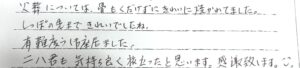 火葬については、骨もくだけずにきれいに焼かれてました。
しっぽの先まできれいでしたね。
有難度うち座居ました。
ニ八君も気持ち良く旅立ったと思います。感謝致します。